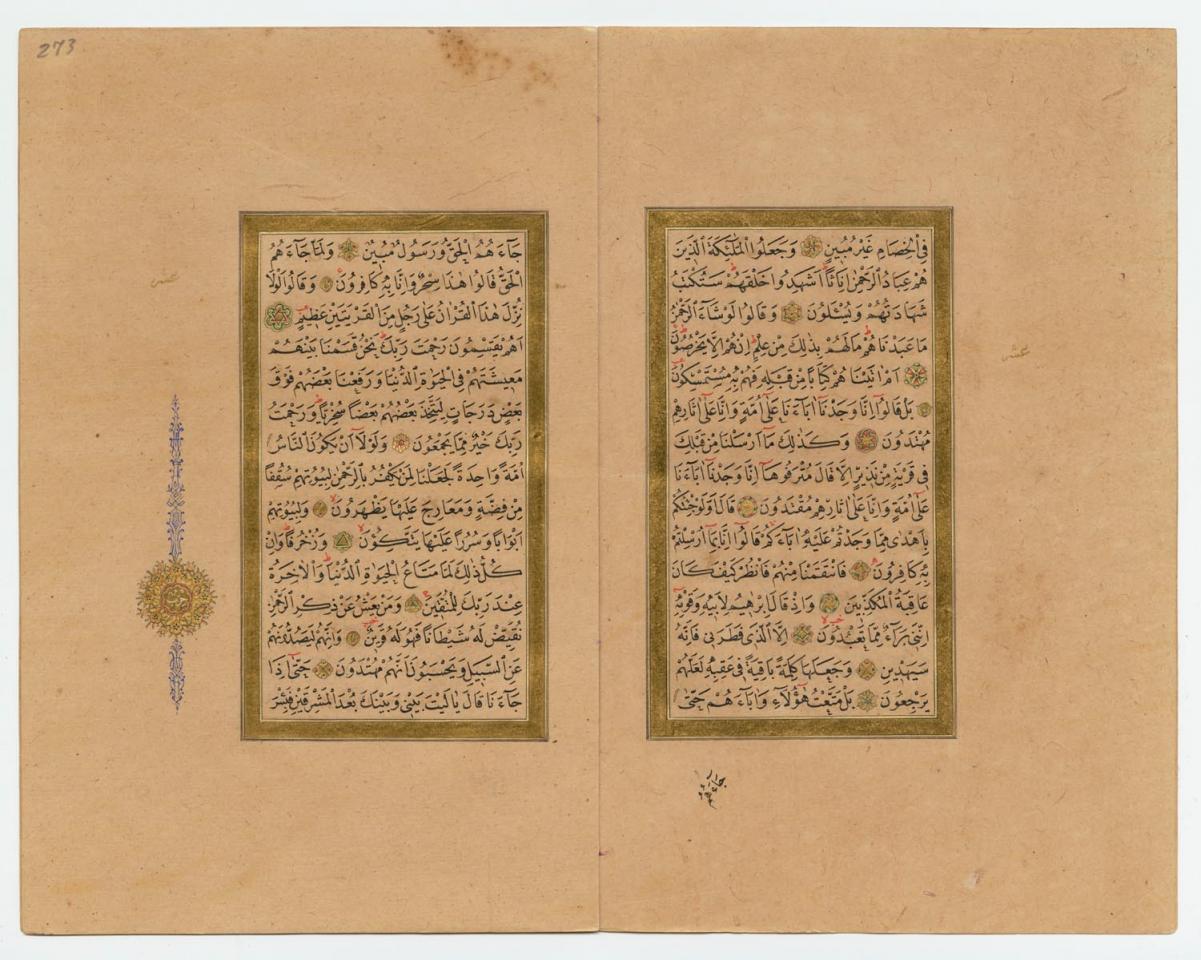 فِى الْخِصَامِ غَيْرُ مُبِينٍ وَجَعَلُوا الْمَلٰئِكَةَ الَّذِينَ
هُمْ عِبَادُ الرَّحْمٰنِ اِنَاثًا اَشَهِدُوا خَلْقَهُمْ سَتُكْتَبُ
شَهَادَتُهُمْ وَيُسْئَلُونَ وَقَالُوا لَوْ شَاءَ الرَّحْمٰنُ
مَا عَبَدْنَاهُمْ مَا لَهُمْ بِذٰلِكَ مِنْ عِلْمٍ اِنْ هُمْ اِلَّا يَخْرُصُونَ
اَمْ اٰتَيْنَاهُمْ كِتَابًا مِنْ قَبْلِهِ فَهُمْ بِهِ مُسْتَمْسِكُونَ
بَلْ قَالُوا اِنَّا وَجَدْنَا اٰبَاءَنَا عَلٰى اُمَّةٍ وَاِنَّا عَلٰى اٰثَارِهِمْ
مُهْتَدُونَ وَكَذٰلِكَ مَا اَرْسَلْنَا مِنْ قَبْلِكَ
فِى قَرْيَةٍ مِنْ نَذِيرٍ اِلَّا قَالَ مُتْرَفُوهَا اِنَّا وَجَدْنَا اٰبَاءَنَا
عَلٰى اُمَّةٍ وَاِنَّا عَلٰى اٰثَارِهِمْ مُقْتَدُونَ قَالَ اَوَلَوْ جِئْتُكُمْ
بِاَهْدٰى مِمَّا وَجَدْتُمْ عَلَيْهِ اٰبَاءَكُمْ قَالُوا اِنَّا بِمَا اُرْسِلْتُمْ
بِهِ كَافِرُونَ فَانْتَقَمْنَا مِنْهُمْ فَانْظُرْ كَيْفَ كَانَ
عَاقِبَةُ الْمُكَذِّبِينَ وَاِذْ قَالَ اِبْرٰهِيمُ لِاَبِيهِ وَقَوْمِهِ
اِنَّنِى بَرَاءٌ مِمَّا تَعْبُدُونَ اِلَّا الَّذِى فَطَرَنِى فَاِنَّهُ
سَيَهْدِينِ وَجَعَلَهَا كَلِمَةً بَاقِيَةً فِى عَقِبِهِ لَعَلَّهُمْ
يَرْجِعُونَ بَلْ مَتَّعْتُ هٰؤُلَاءِ وَاٰبَاءَهُمْ حَتّٰى
جَاءَهُمُ
عشر
جَاءَهُمُ الْحَقُّ وَرَسُولٌ مُبِينٌ وَلَمَّا جَاءَهُمُ
الْحَقُّ قَالُوا هٰذَا سِحْرٌ وَاِنَّا بِهِ كَافِرُونَ وَقَالُوا لَوْلَا
نُزِّلَ هٰذَا الْقُرْاٰنُ عَلٰى رَجُلٍ مِنَ الْقَرْيَتَيْنِ عَظِيمٍ
اَهُمْ يَقْسِمُونَ رَحْمَتَ رَبِّكَ نَحْنُ قَسَمْنَا بَيْنَهُمْ
مَعِيشَتَهُمْ فِى الْحَيٰوةِ الدُّنْيَا وَرَفَعْنَا بَعْضَهُمْ فَوْقَ
بَعْضٍ دَرَجَاتٍ لِيَتَّخِذَ بَعْضُهُمْ بَعْضًا سُخْرِيًّا وَرَحْمَتُ
رَبِّكَ خَيْرٌ مِمَّا يَجْمَعُونَ وَلَوْلَا اَنْ يَكُونَ النَّاسُ
اُمَّةً وَاحِدَةً لَجَعَلْنَا لِمَنْ يَكْفُرُ بِالرَّحْمٰنِ لِبُيُوتِهِمْ سُقُفًا
مِنْ فِضَّةٍ وَمَعَارِجَ عَلَيْهَا يَظْهَرُونَ وَلِبُيُوتِهِمْ
اَبْوَابًا وَسُرُرًا عَلَيْهَا يَتَّكِؤُنَ وَزُخْرُفًا وَاِنْ
كُلُّ ذٰلِكَ لَمَّا مَتَاعُ الْحَيٰوةِ الدُّنْيَا وَالْاٰخِرَةُ
عِنْدَ رَبِّكَ لِلْمُتَّقِينَ وَمَنْ يَعْشُ عَنْ ذِكْرِ الرَّحْمٰنِ
نُقَيِّضْ لَهُ شَيْطَانًا فَهُوَ لَهُ قَرِينٌ وَاِنَّهُمْ لَيَصُدُّونَهُمْ
عَنِ السَّبِيلِ وَيَحْسَبُونَ اَنَّهُمْ مُهْتَدُونَ حَتّٰى اِذَا
جَاءَنَا قَالَ يَا لَيْتَ بَيْنِى وَبَيْنَكَ بُعْدَ الْمَشْرِقَيْنِ فَبِئْسَ
عشر
273